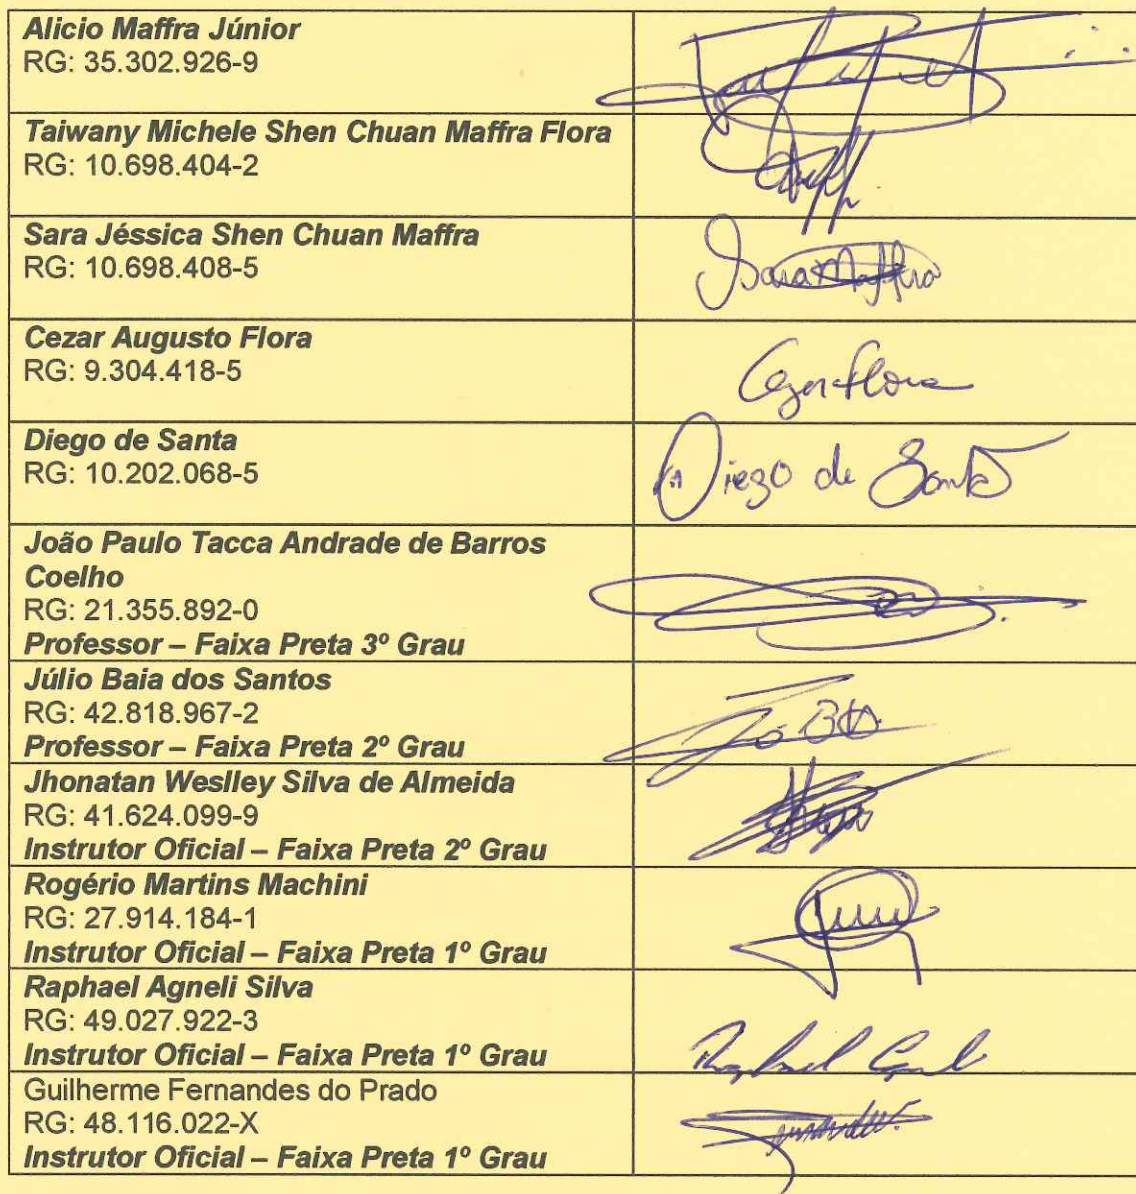 Alicio Maffra Júnior
RG: 35.302.926-9
Taiwany Michele Shen Chuan Maffra Flora
RG: 10.698.404-2
Sara Jéssica Shen Chuan Maffra
RG: 10.698.408-5
Sara Maffra
Cezar Augusto Flora
RG: 9.304.418-5
Cezar Flora
Diego de Santa
RG: 10.202.068-5
Diego de Santa
João Paulo Tacca Andrade de Barros
Coelho
RG: 21.355.892-0
Professor – Faixa Preta 3º Grau
Júlio Baia dos Santos
RG: 42.818.967-2
Professor – Faixa Preta 2º Grau
Jhonatan Weslley Silva de Almeida
RG: 41.624.099-9
Instrutor Oficial – Faixa Preta 2º Grau
Rogério Martins Machini
RG: 27.914.184-1
Instrutor Oficial – Faixa Preta 1º Grau
Raphael Agneli Silva
RG: 49.027.922-3
Instrutor Oficial – Faixa Preta 1º Grau
Raphael
Guilherme Fernandes do Prado
RG: 48.116.022-X
Instrutor Oficial – Faixa Preta 1º Grau